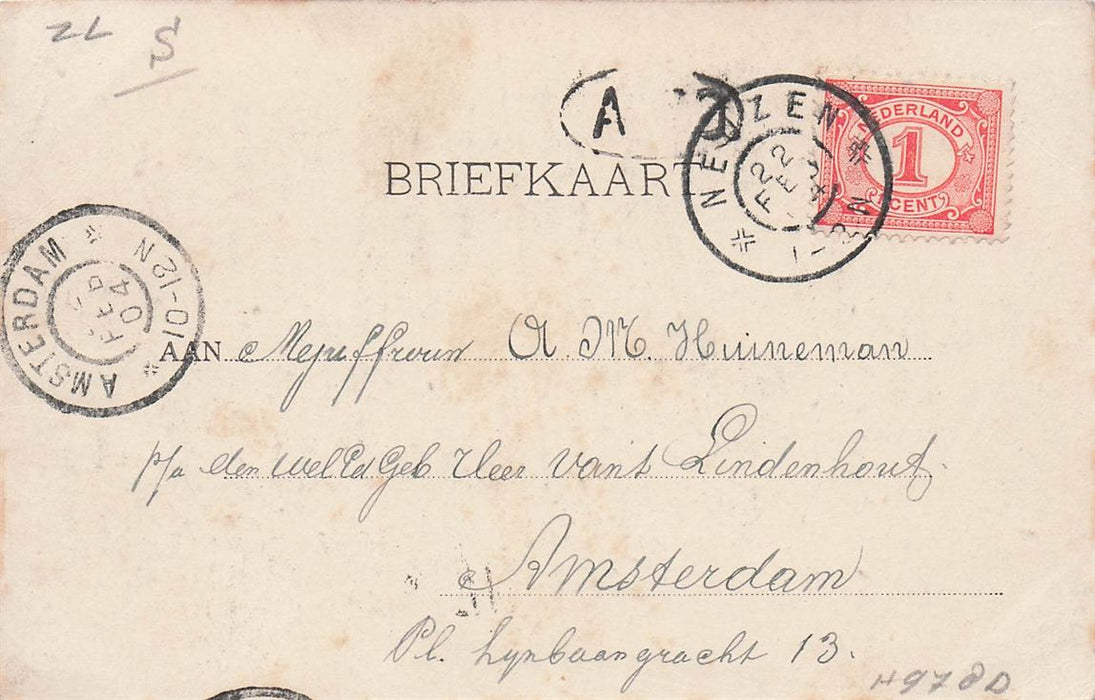 ZL S
A 3
BRIEFKAART
NEUZEN
NEDERLAND
1
CENT
AMSTERDAM
FEB
04
10-12N
AAN Mejuffrouw A. M. Huineman
p/a den WelEdGeb Heer van't Lindenhout.
Amsterdam
Pl. Lynbaansgracht 13.
H978D